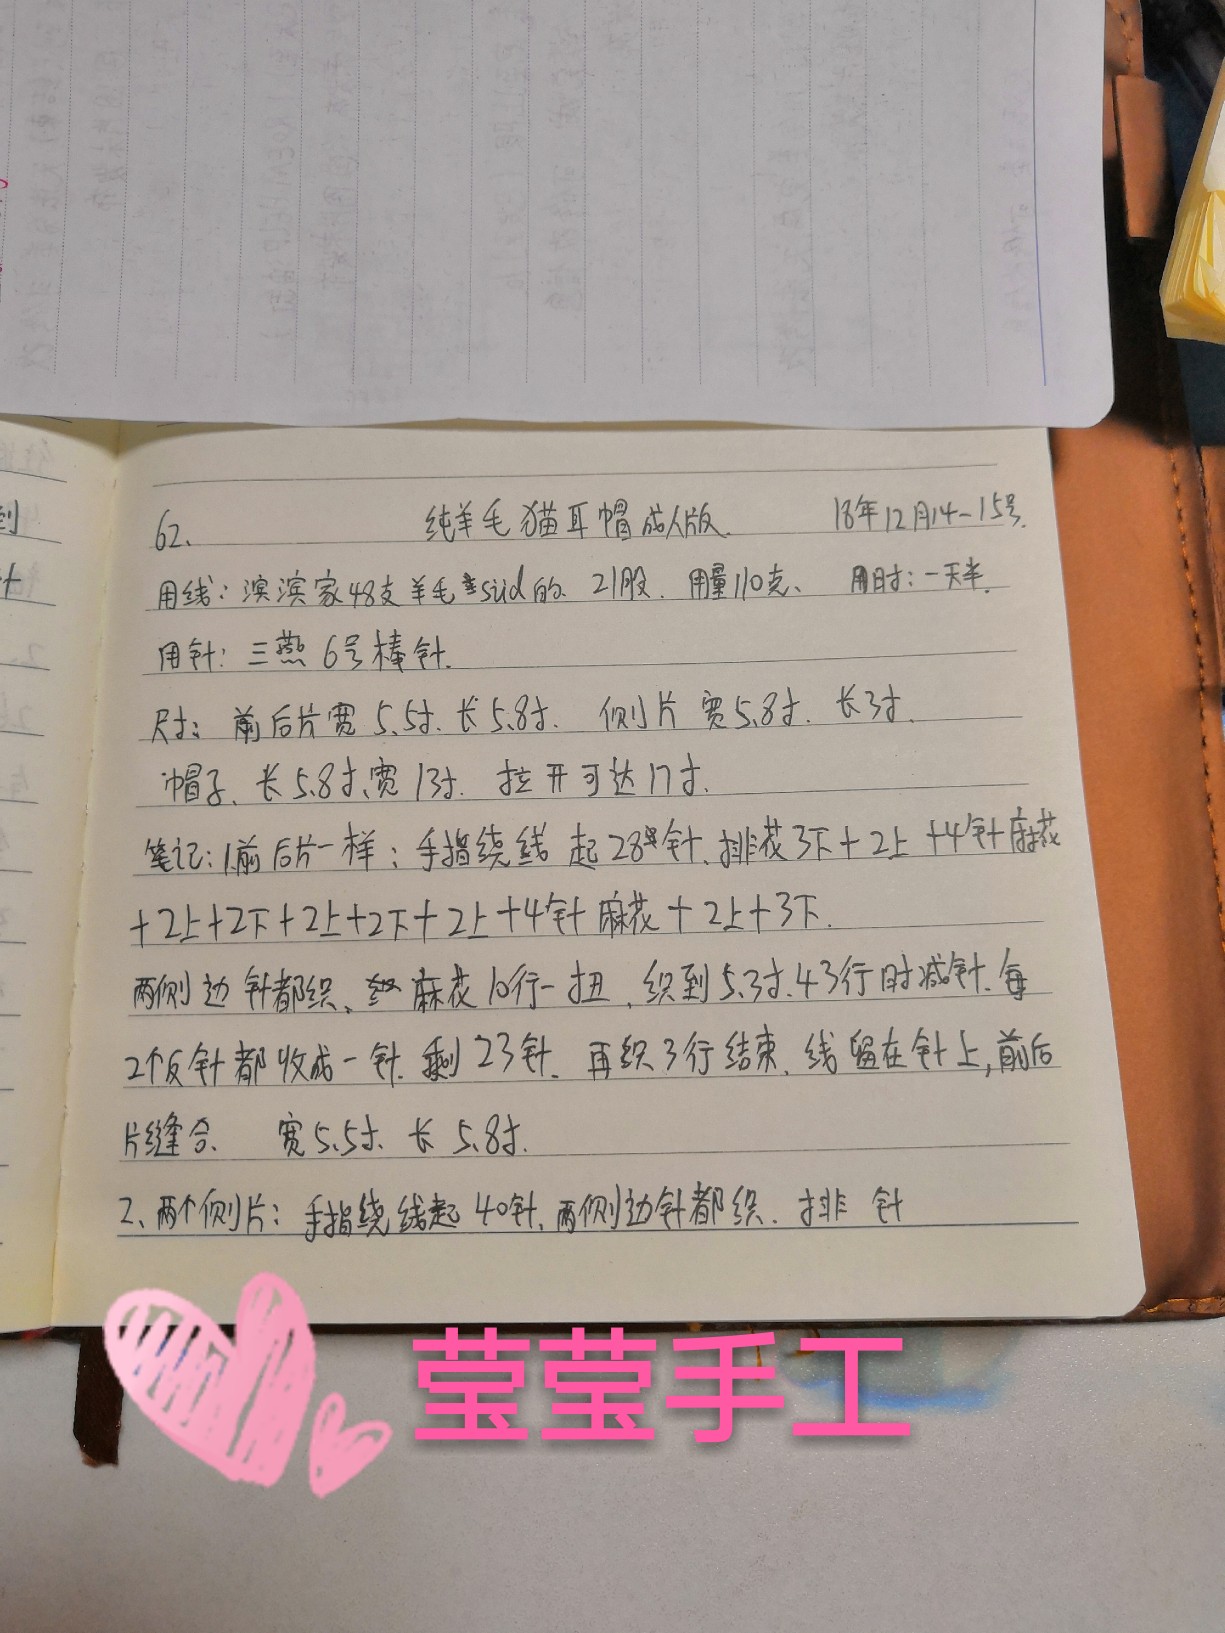 到
62、 纯羊毛猫耳帽成人版. 18年12月14-15号.
用线：滨滨家48支羊毛süd的 21股. 用量110克、 用时：一天半.
用针：三燕 6号棒针.
尺寸：前后片宽5.5寸. 长5.8寸. 侧片宽5.8寸. 长3寸.
帽子、长5.8寸、宽13寸. 拉开可达17寸.
笔记：1.前后片一样：手指绕线起28针、排花3下+2上+4针麻花
+2上+2下+2上+2下+2上+4针麻花+2上+3下.
两侧边针都织、麻花10行一扭、织到5.3寸.43行时减针.每
2个反针都收成一针.剩23针. 再织3行结束、线留在针上，前后
片缝合、 宽5.5寸. 长5.8寸.
2、两个侧片：手指绕线起40针、两侧边针都织. 排 针
莹莹手工